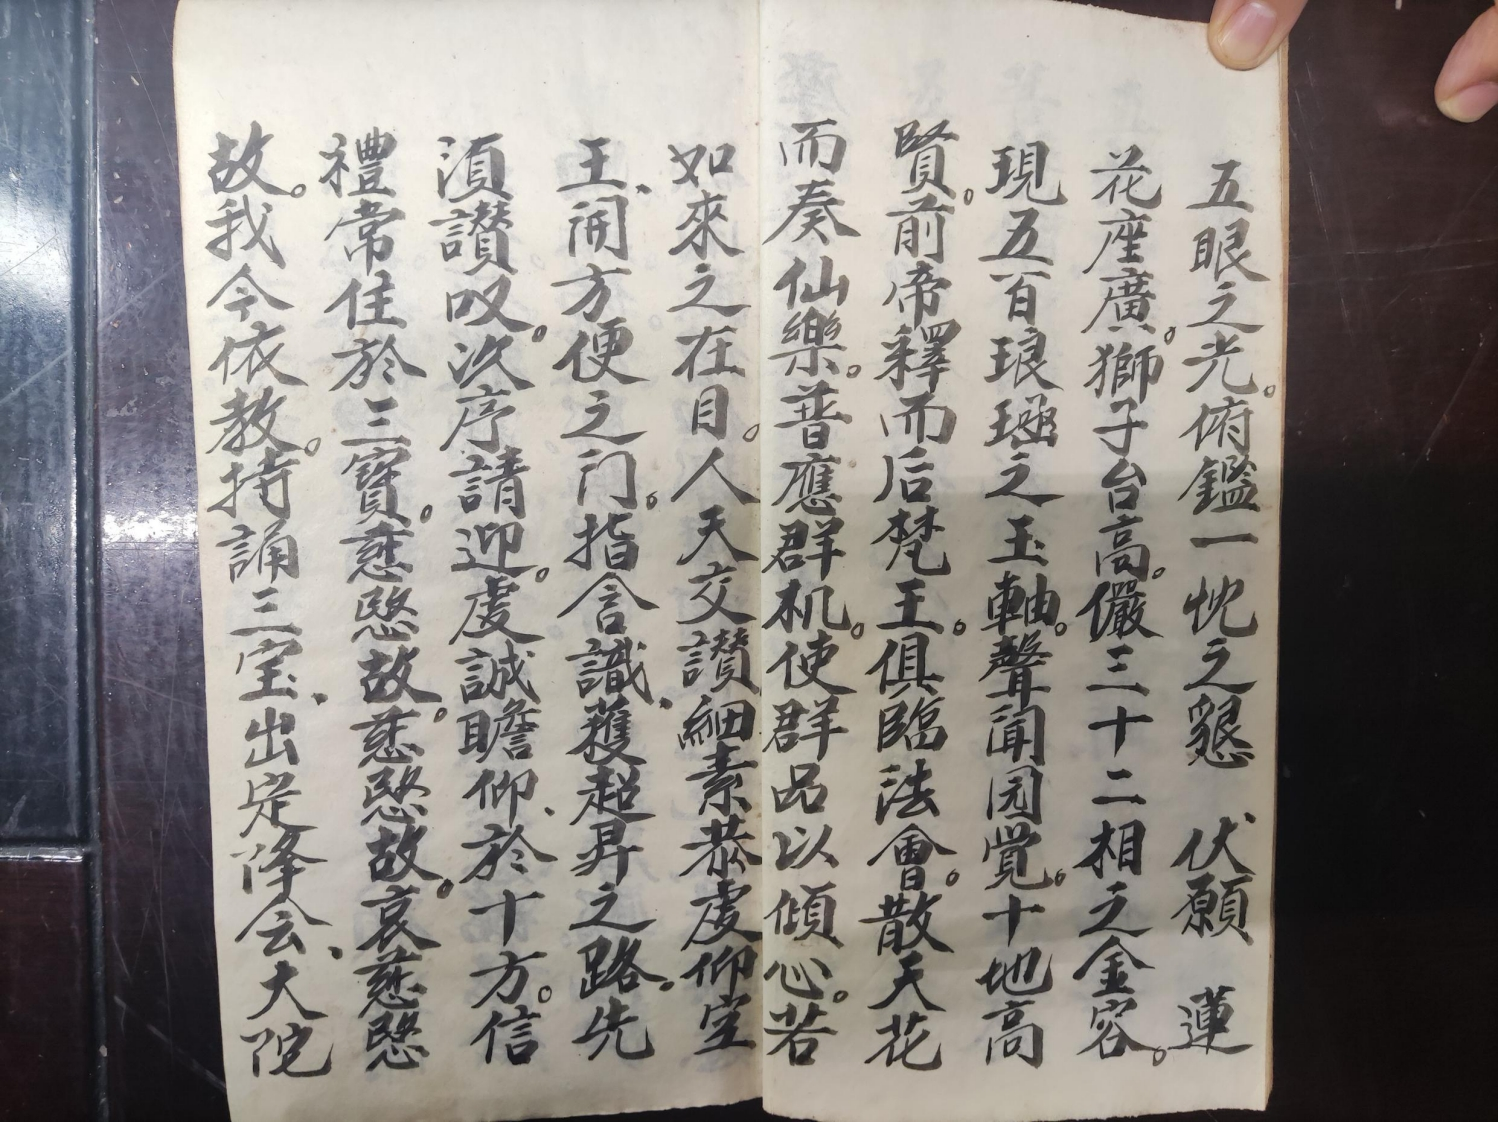 五眼之光。俯鑑一忱之懇　伏願　蓮
花座廣。獅子台高。儼三十二相之金容。
現五百琅函之玉軸。聲闻园覺。十地高
賢。前帝釋而后梵王。俱臨法會。散天花
而奏仙樂。普應群机。使群品以傾心。若
如來之在目。人天交讃緇素恭虔仰空
王、闹方便之门。指含識、獲超昇之路。先
湏讃叹。次序請迎。虔誠瞻仰、於十方。信
禮常住於三寳。慈愍故。慈愍故。哀慈愍
故。我今依教。持誦三宝、出定降会、大陀